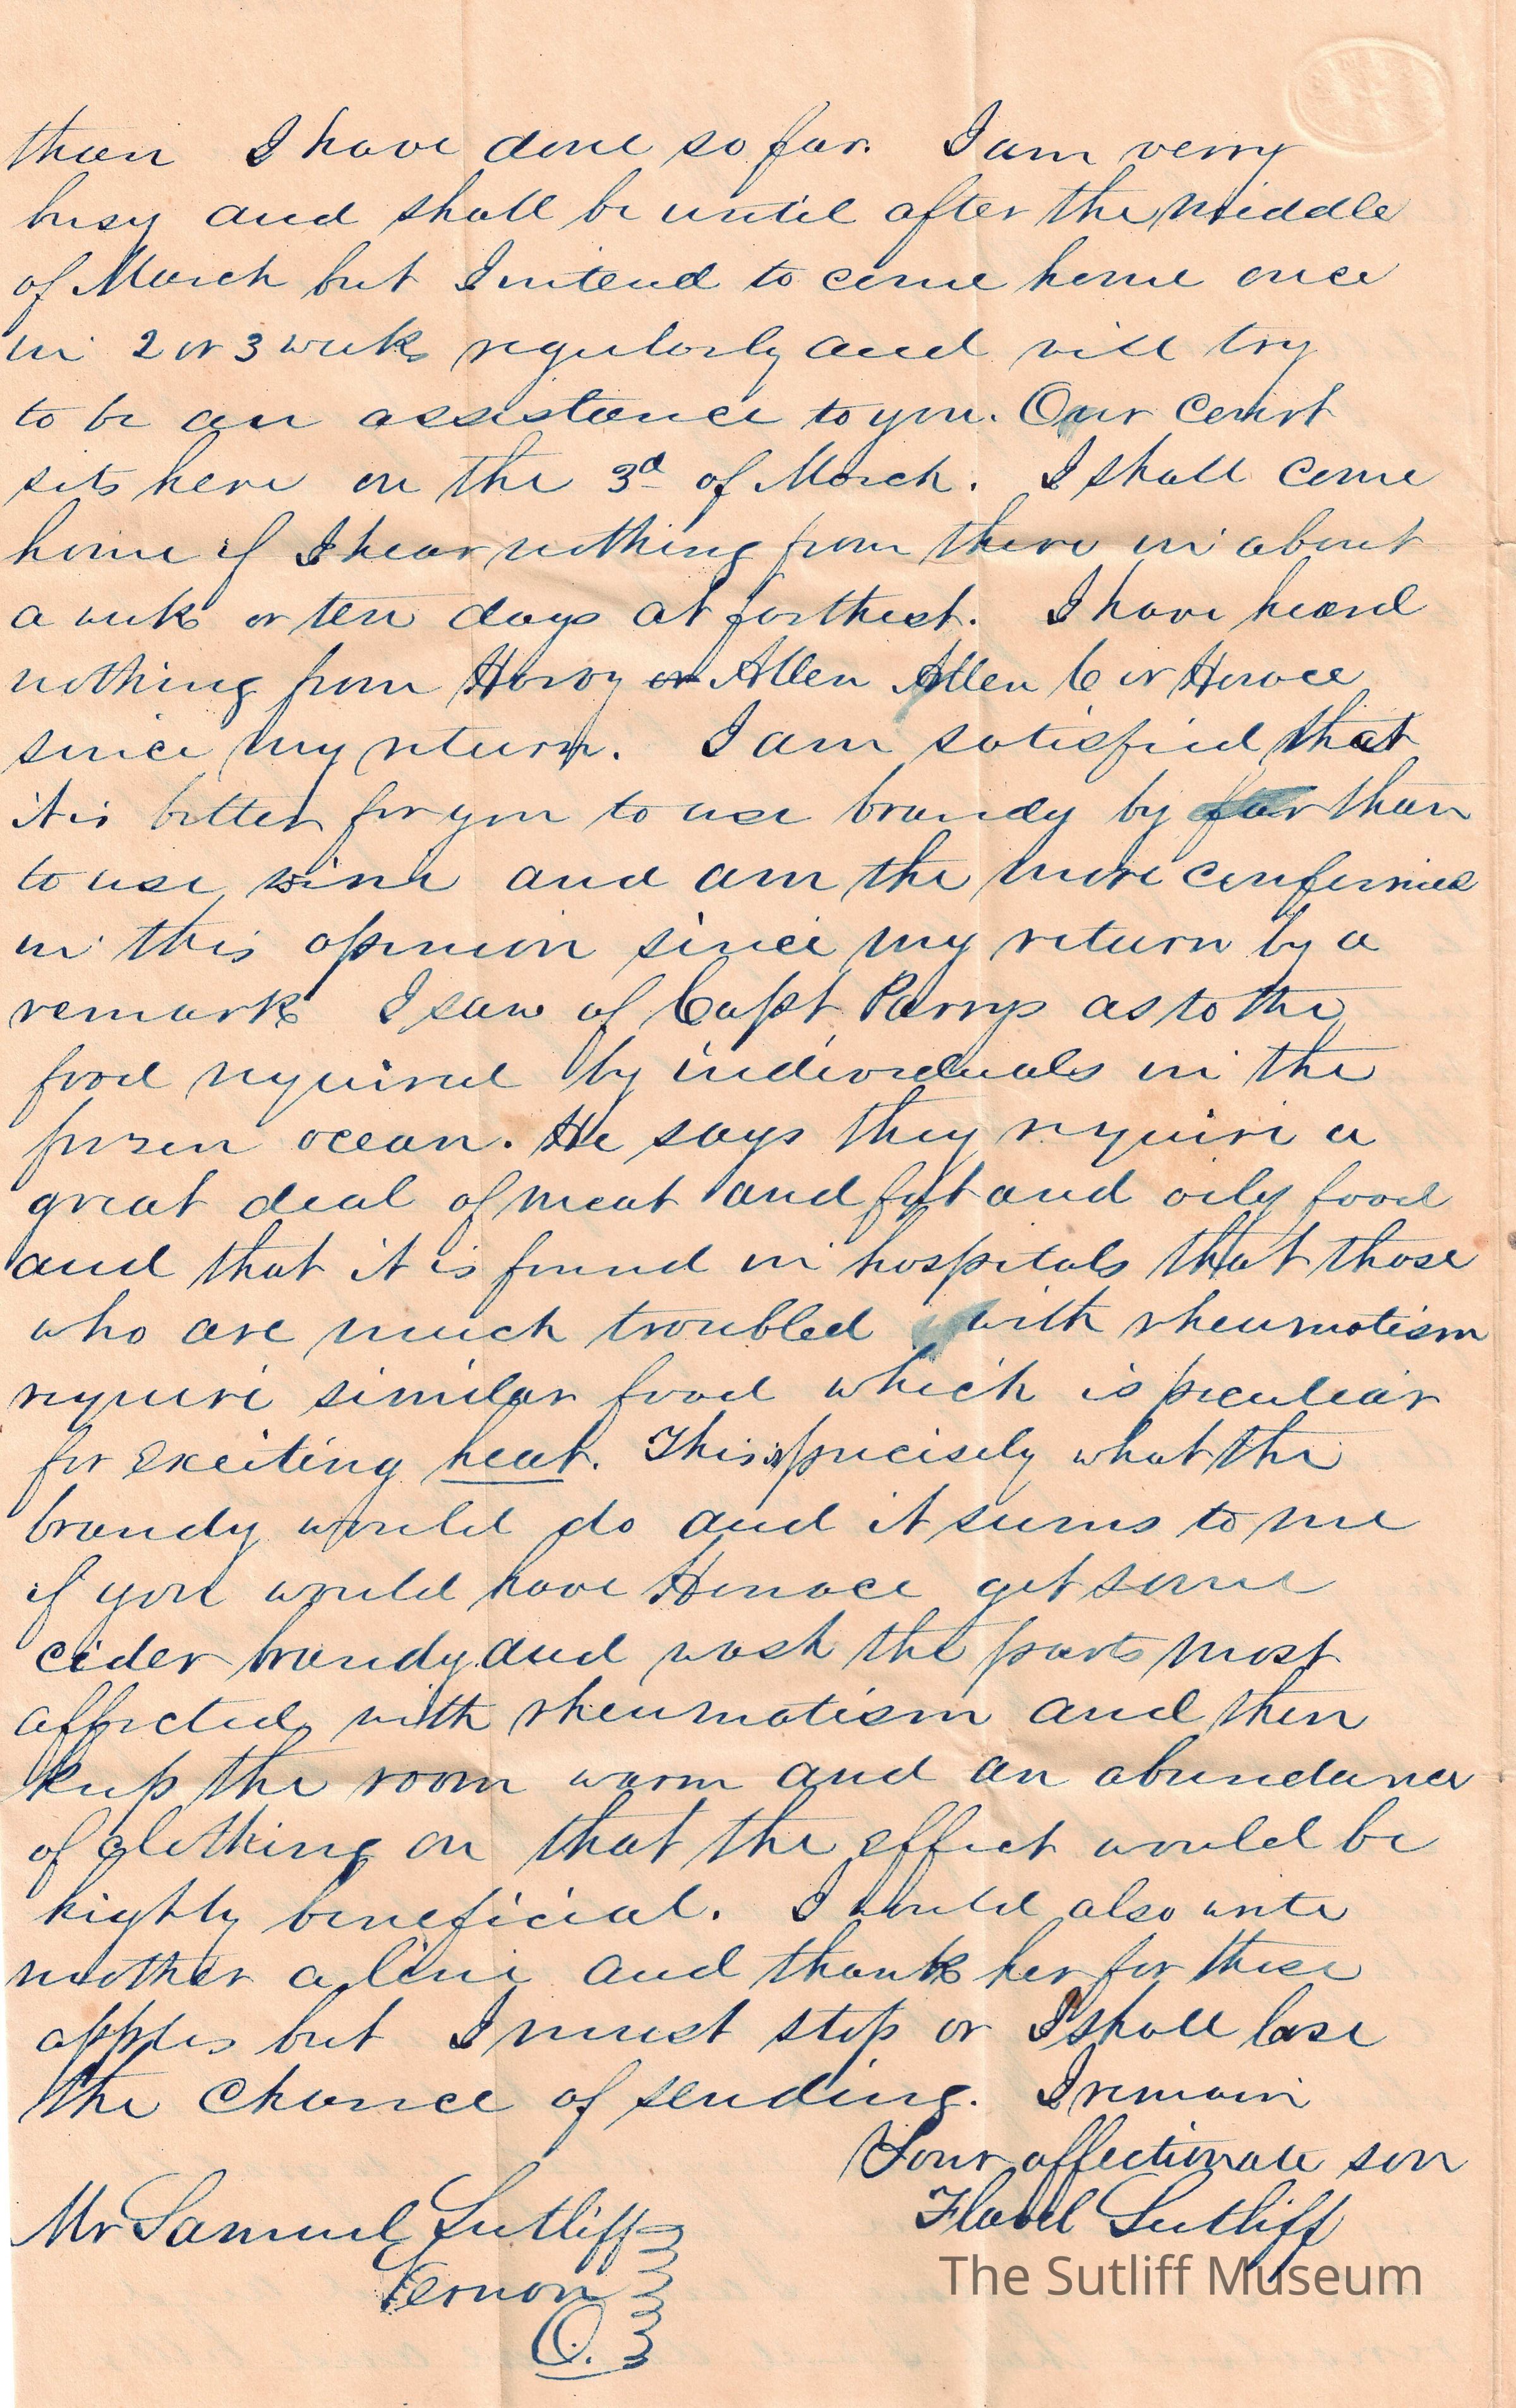 than I have done so far. I am verry
busy and shall be until after the middle
of March but I intend to come home once
in 2 or 3 weeks regularly and will try
to be an assistance to you. Our court
sits here on the 3d of March. I shall come
home if I hear nothing from there in about
a week or ten days at farthest. I have heard
nothing from Harvy or Allen Allen C or Horace
since my return. I am satisfied that
it is better for you to use brandy by far than
to use wine and am the more confirmed
in this opinion since my return by a
remark I saw of Capt Parrys as to the
food required by individuals in the
frozen ocean. He says they require a
great deal of meat and fat and oily food
and that it is found in hospitals that those
who are much troubled with rheumatism
require similar food which is peculiar
for exciting heat. This is precisely what the
brandy would do and it seems to me
if you would have Horace get some
cider brandy and wash the parts most
affected with rheumatism and then
keep the room warm and an abundance
of clothing on that the effect would be
highly beneficial. I would also write
mother a line and thank her for those
apples but I must stop or I shall lose
the chance of sending. I remain
Your affectionate son
Flavel Sutliff
Mr Samuel Sutliff
Vernon
O.
The Sutliff Museum